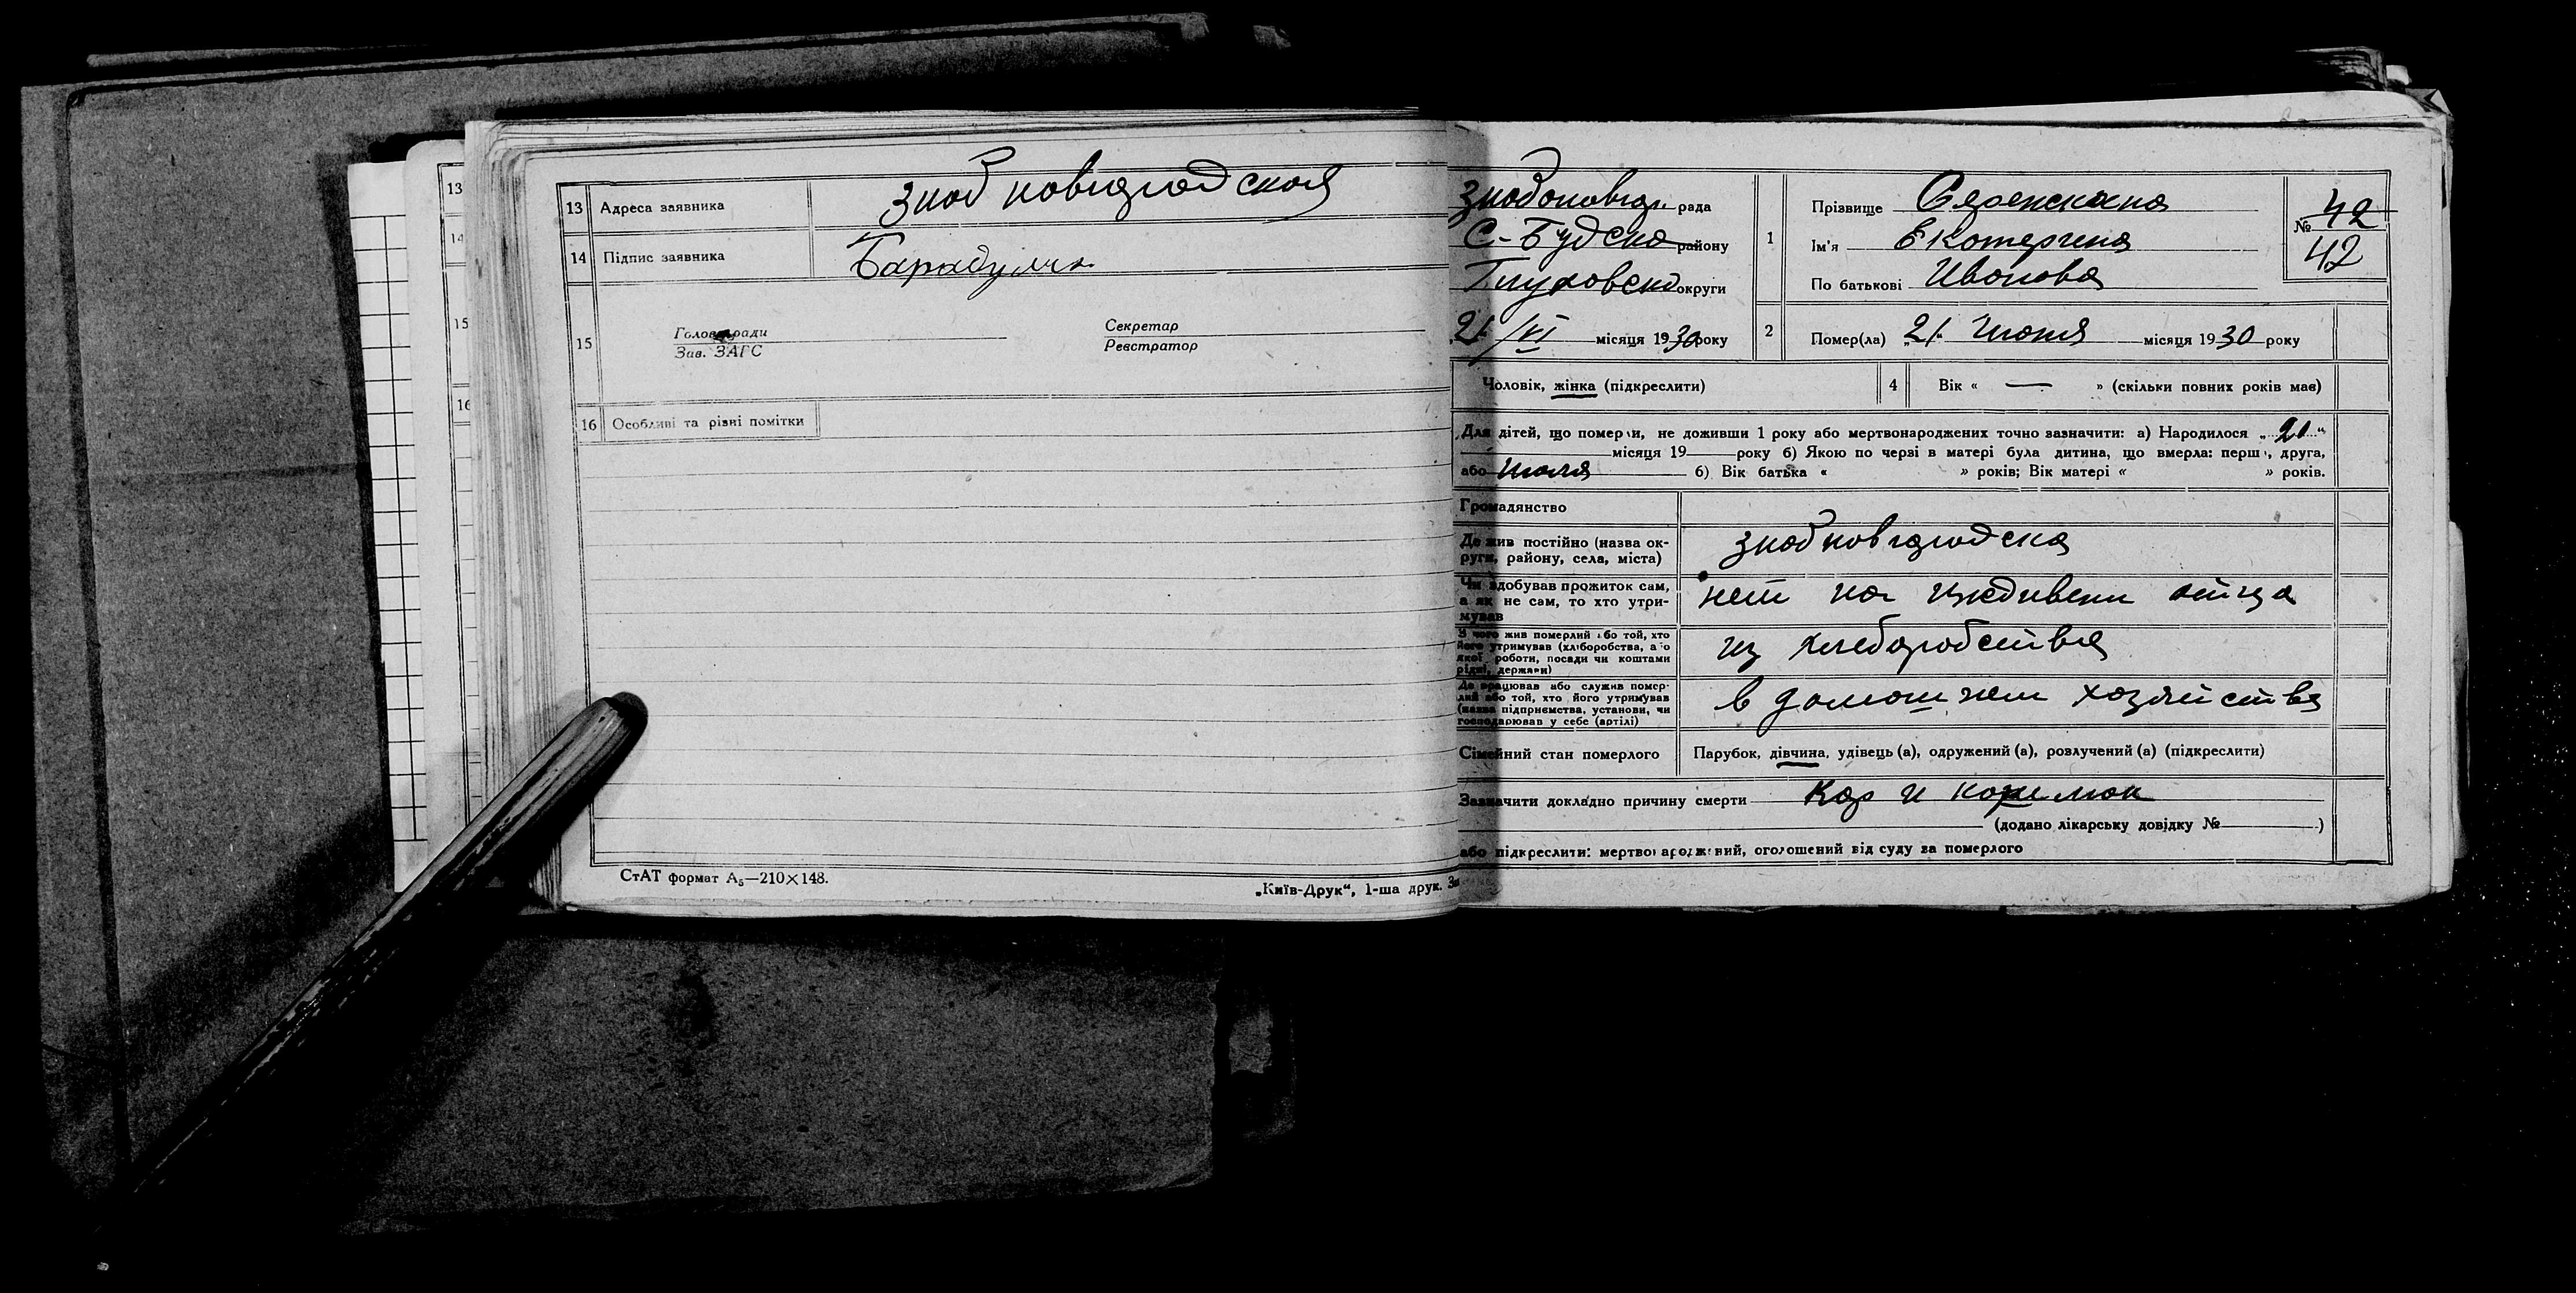 13
14
15
16
13 Адреса заявника Зноб новгородская
14 Підпис заявника
15
Голова ради
Зав. ЗАГС
Секретар
Реєстратор
16 Особливі та різні помітки
СтАТ формат А₅—210×148.
„Київ-Друк“, 1-ша друк.
рада
С-Будска району
Глуховско округи
21/VI місяця 1930 року
1
Прізвище
Ім'я Екатерина
По батькові Иванова
№ 42
42
2 Помер(ла) „21“ Июня місяця 1930 року
Чоловік, жінка (підкреслити)
4 Вік « — » (скільки повних років мав)
Для дітей, що померли, не доживши 1 року або мертвонароджених точно зазначити: а) Народилося „20“
місяця 19 року б) Якою по черзі в матері була дитина, що вмерла: перша, друга,
або 6) Вік батька « » років; Вік матері « » років.
Громадянство
Де жив постійно (назва ок-
руги, району, села, міста)
знобновгородска
Чи здобував прожиток сам,
а як не сам, то хто утри-
мував
нет на иждивени отца
З чого жив померлий або той, хто
його утримував (хліборобства, або
якої роботи, посади чи коштами
рідні, держави)
из хлеборобства
Де працював або служив помер-
лий або той, хто його утримував
(назва підприємства, установи, чи
господарював у себе (артілі)
в домашнем хозяйства
Сімейний стан померлого
Парубок, дівчина, удівець (а), одружений (а), розлучений (а) (підкреслити)
Зазначити докладно причину смерти Кор и
(додано лікарську довідку № )
або підкреслити: мертвонароджений, оголошений від суду за померлого